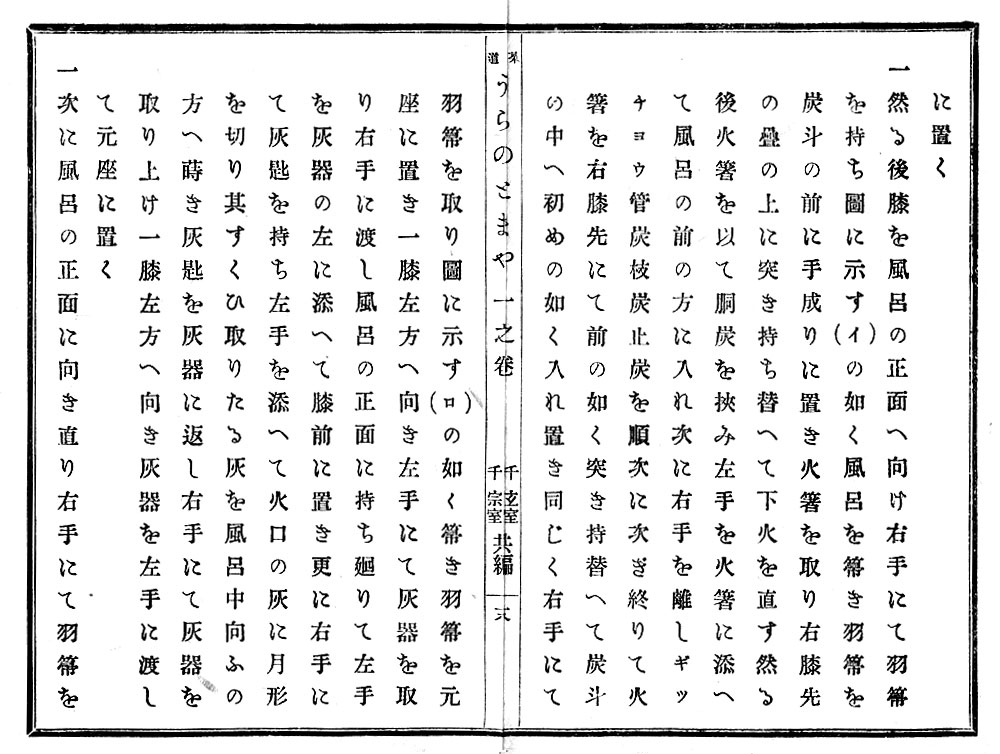 に置く
一然る後膝を風呂の正面へ向け右手にて羽箒
を持ち圖に示す(イ)の如く風呂を箒き羽箒を
炭斗の前に手成りに置き火箸を取り右膝先
の疊の上に突き持ち替へて下火を直す然る
後火箸を以て胴炭を挾み左手を火箸に添へ
て風呂の前の方に入れ次に右手を離しギッ
チョウ管炭枝炭止炭を順次に次ぎ終りて火
箸を右膝先にて前の如く突き持替へて炭斗
の中へ初めの如く入れ置き同じく右手にて
茶道
うらのとまや一之卷
千玄室
千宗室
共編
羽箒を取り圖に示す(ロ)の如く箒き羽箒を元
座に置き一膝左方へ向き左手にて灰器を取
り右手に渡し風呂の正面に持ち廻りて左手
を灰器の左に添へて膝前に置き更に右手に
て灰匙を持ち左手を添へて火口の灰に月形
を切り其すくひ取りたる灰を風呂中向ふの
方へ蒔き灰匙を灰器に返し右手にて灰器を
取り上け一膝左方へ向き灰器を左手に渡し
て元座に置く
一次に風呂の正面に向き直り右手にて羽箒を